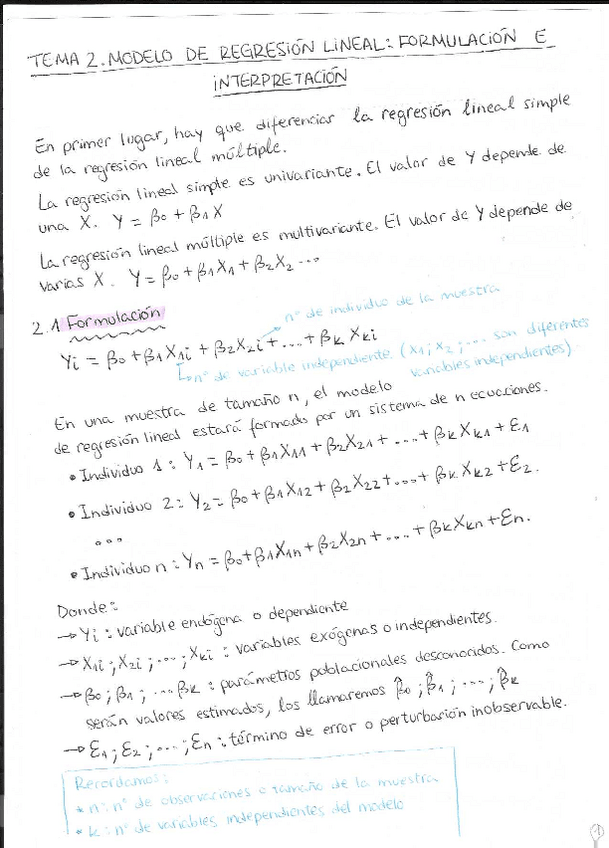 TEMA 2. MODELO DE REGRESIÓN LINEAL: FORMULACIÓN E
INTERPRETACIÓN
En primer lugar, hay que diferenciar la regresión lineal simple
de la regresión lineal múltiple.
La regresión lineal simple es univariante. El valor de Y depende de
una X. Y = β0 + β1X
La regresión lineal múltiple es multivariante. El valor de Y depende de
varias X. Y = β0 + β1X1 + β2X2 ...
2.1 Formulación
nº de individuo de la muestra
Yi = β0 + β1X1i + β2X2i + ... + βk Xki
nº de variable independiente. (X1; X2; ... son diferentes
variables independientes).
En una muestra de tamaño n, el modelo
de regresión lineal estará formado por un sistema de n ecuaciones.
• Individuo 1: Y1 = β0 + β1X11 + β2X21 + .... + βk Xk1 + ε1
• Individuo 2: Y2 = β0 + β1X12 + β2X22 + .... + βk Xk2 + ε2.
...
• Individuo n: Yn = β0 + β1X1n + β2X2n + .... + βkXkn + εn.
Donde:
→ Yi: variable endógena o dependiente
→ X1i; X2i; ...; Xki: variables exógenas o independientes.
→ β0; β1; ... βk: parámetros poblacionales desconocidos. Como
serán valores estimados, los llamaremos β̂0; β̂1; ...; β̂k
→ ε1; ε2; ...; εn: término de error o perturbación inobservable.
Recordamos:
* n: nº de observaciones o tamaño de la muestra
* k: nº de variables independientes del modelo
1